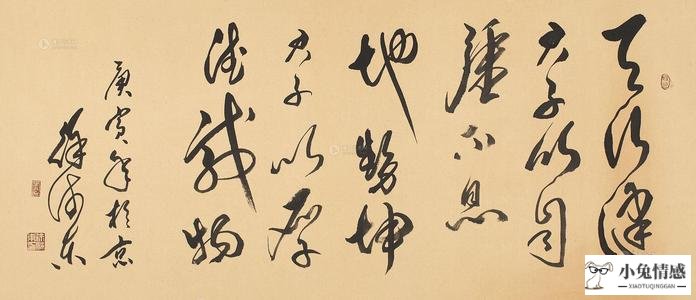 天行健
君子以自
彊不息
地勢坤
君子以厚
德載物
庚寅年於京
小兔情感
XIAOTUQINGGAN